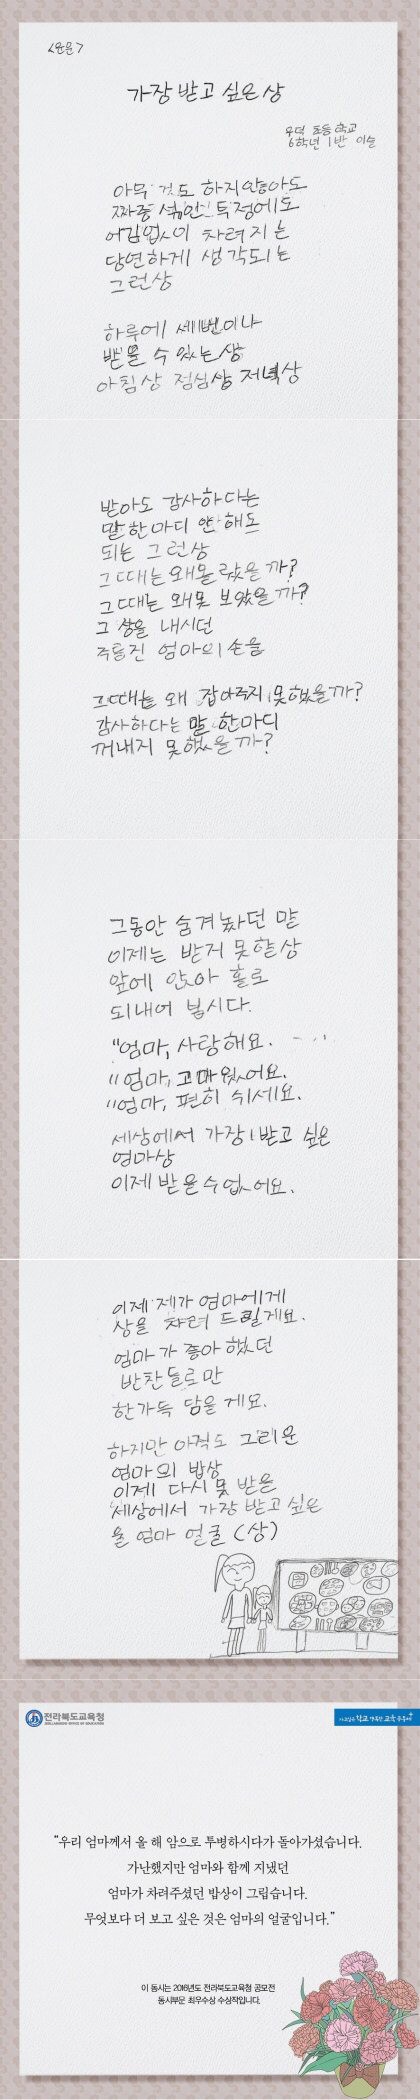 <운문>
가장 받고 싶은 상
우덕 초등학교
6학년 1반 이슬
아무 것도 하지 않아도
짜증 섞인 투정에도
어김없이 차려지는
당연하게 생각되는
그런상
하루에 세번이나
받을 수 있는 상
아침상 점심상 저녁상
받아도 감사하다는
말 한마디 안 해도
되는 그런상
그때는 왜몰랐을까?
그때는 왜 못 보았을까?
그 상을 내시던
주름진 엄마의 손을
그때는 왜 잡아주지 못했을까?
감사하다는 말 한마디
꺼내지 못했을까?
그동안 숨겨놨던 말
이제는 받지 못할상
앞에 앉아 홀로
되내어 봅시다.
"엄마, 사랑해요.
"엄마, 고마웠어요.
"엄마, 편히 쉬세요.
세상에서 가장 받고 싶은
엄마상
이제 받을 수 없어요.
이제 제가 엄마에게
상을 차려 드릴게요.
엄마가 좋아했던
반찬들로만
한가득 담을게요.
하지만 아직도 그리운
엄마의 밥상
이제 다시 못 받을
세상에서 가장 받고 싶은
울 엄마 얼굴 (상)
전라북도교육청
JEOLLABUKDO OFFICE OF EDUCATION
가고싶은 학교 행복한 교육 공동체
"우리 엄마께서 올 해 암으로 투병하시다가 돌아가셨습니다.
가난했지만 엄마와 함께 지냈던
엄마가 차려주셨던 밥상이 그립습니다.
무엇보다 더 보고 싶은 것은 엄마의 얼굴입니다."
이 동시는 2016년도 전라북도교육청 공모전
동시부문 최우수상 수상작입니다.